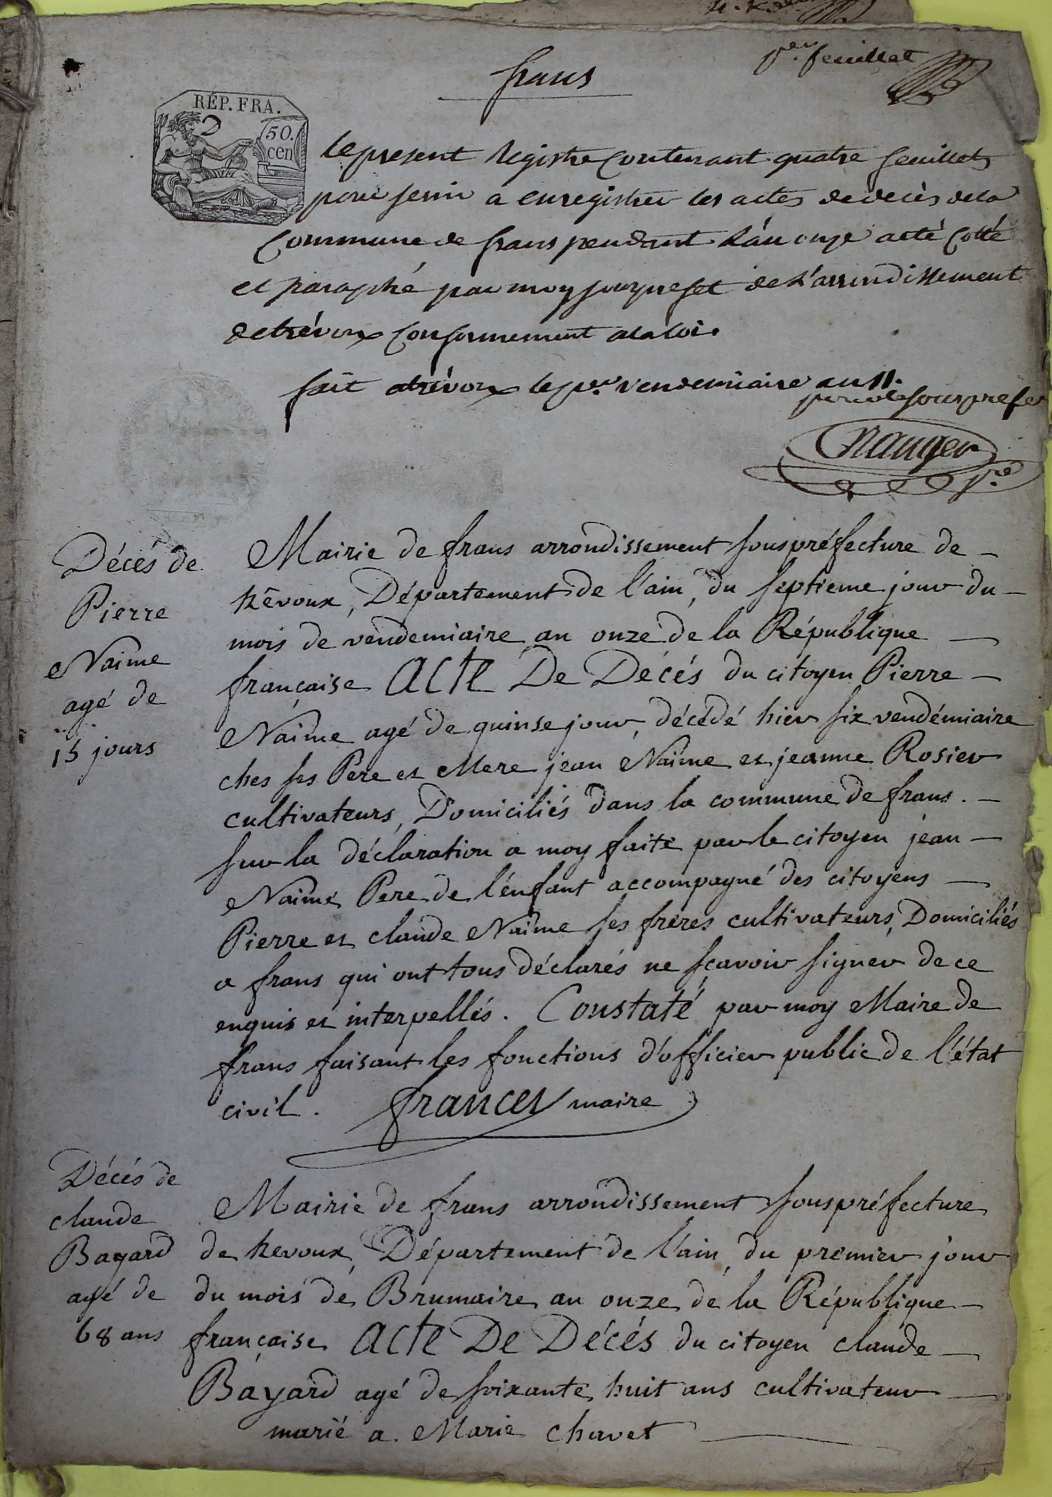 per feuillet
frans
RÉP. FRA.
50.
cen
le present Registre contenant quatre feuillets
pour servir a enregistrer les actes de decès de la
Commune de frans pendant l'án onze a été Cotté
et paraphé par moy souprefet de L'arrondissement
de trévoux conformement a la loi.
fait a trévoux le per. vendemiaire an 11.
le sousprefet
Décés de
Pierre
Naime
agé de
15 jours
Mairie de frans arrondissement souspréfecture de
trévoux, Département de l'ain, du septieme jour du
mois de vendemiaire an onze de la République
française Acte De Décés du citoyen Pierre
Naime agé de quinse jour, décédé hier six vendémiaire
ches ses Pere et Mere jean Naime et jeanne Rosier
cultivateurs, Domiciliés dans la commune de frans.
sur la déclaration a moy faite par le citoyen jean
Naime Pere de l'enfant accompagné des citoyens
Pierre et claude Naime ses frères cultivateurs, Domiciliés
a frans qui ont tous déclarés ne sçavoir signer de ce
enquis et interpellés. Constaté par moy Maire de
frans faisant les fonctions d'officier public de l'état
civil. frances maire
Décés de
claude
Bayard
agé de
68 ans
Mairie de frans arrondissement souspréfecture
de trevoux, Département de l'ain, du premier jour
du mois de Brumaire an onze de la République
française Acte De Décés du citoyen claude
Bayard agé de soixante huit ans cultivateur
marié a Marie chavet